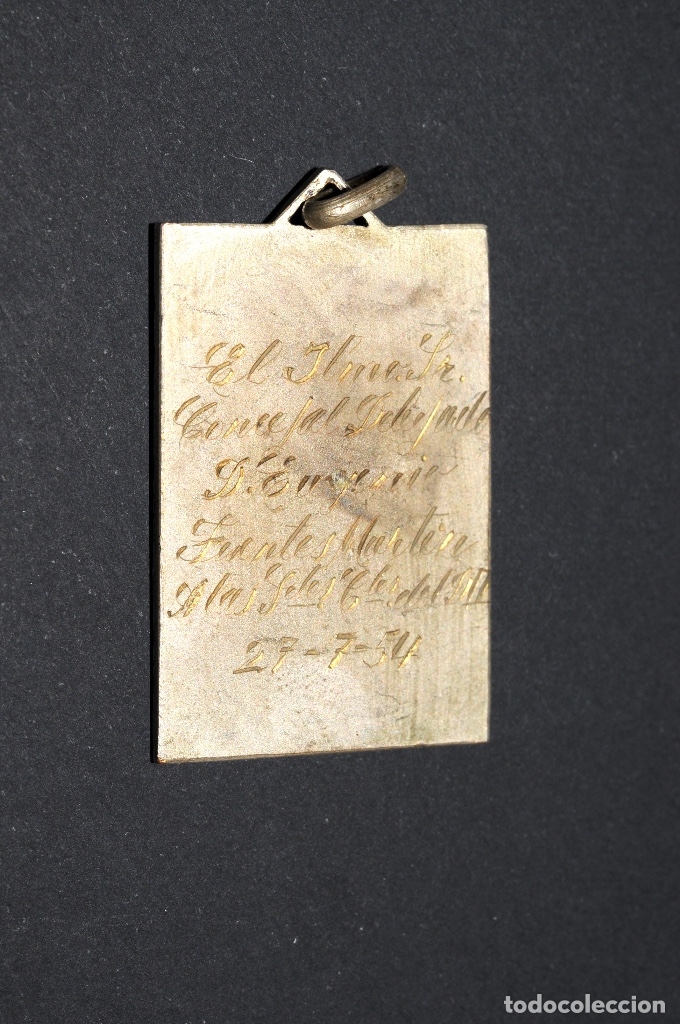 El Ilmo. Sr.
Concejal Delegado
D. Eugenio
Fuentes Martin
A las del
27-7-54
todocoleccion